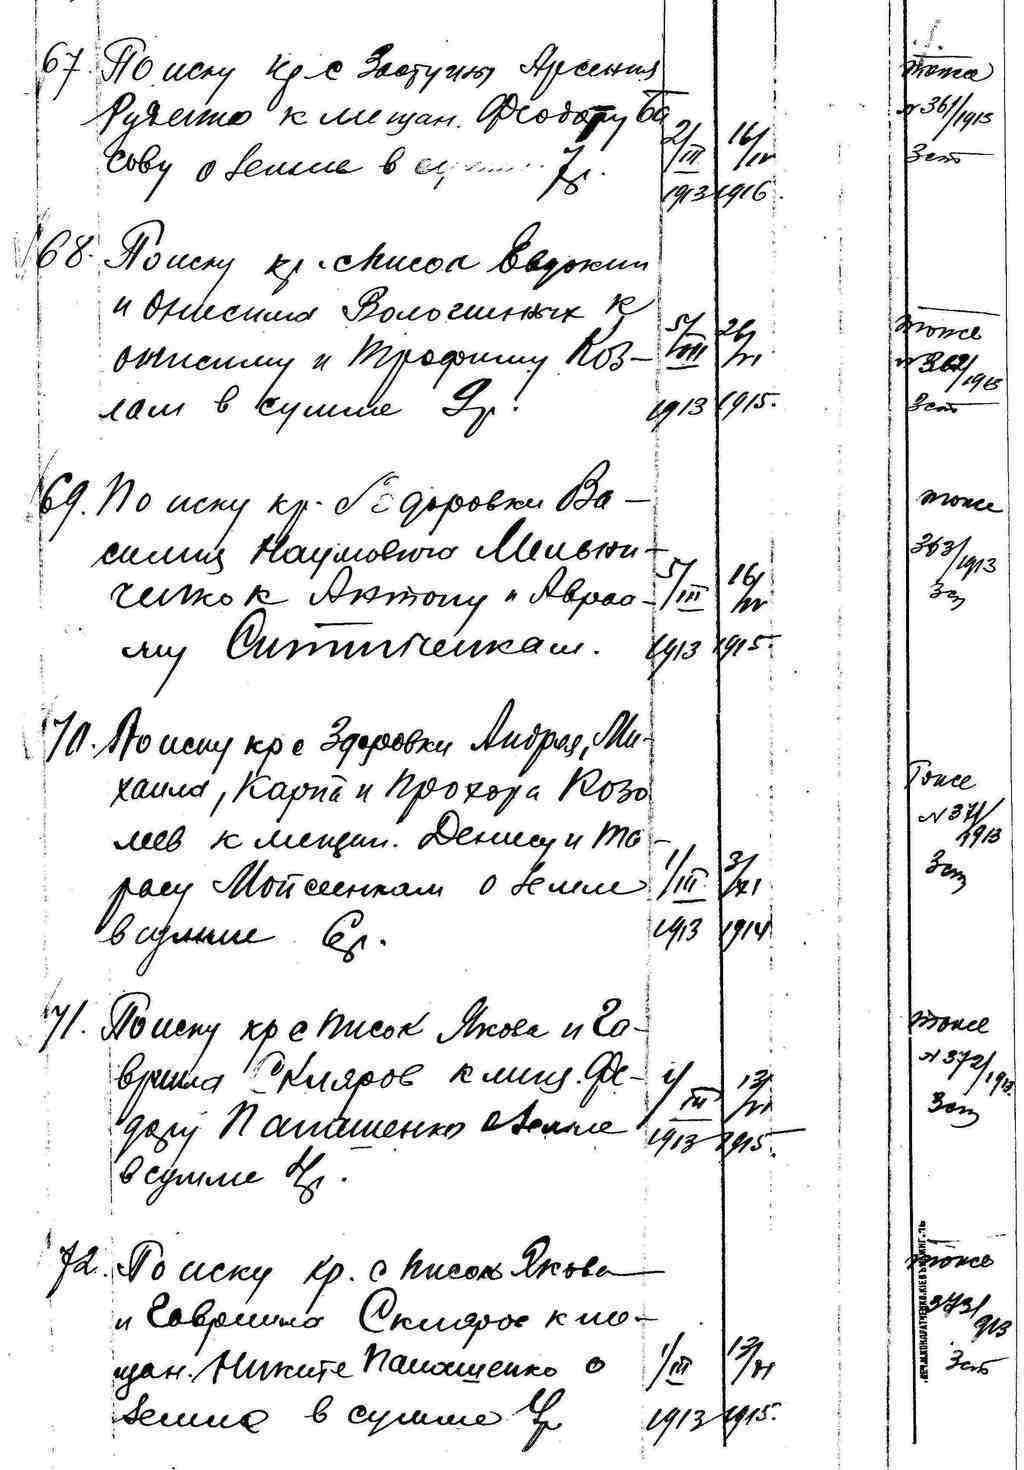 67. По иску кр с Заступни Арсения
Руденко к мещан. Феодору Ба
сову о земле в сумме р.
2/III 1913
16/IV 1916.
тоже
№ 361/1913
3 ст
68. По иску кр. с Писок Евдокии
и Онисима Вологиных к
Онисиму и Трофиму Коз-
лам в сумме 9 р.
5/VIII 1913
26/VI 1915.
тоже
№ 362/1913
3 ст
69. По иску кр. Здоровки Ва-
силия Наумовича Мельни-
ченко к Антону и Авраа-
му Ситниченкам.
5/III 1913
16/IV 1915.
тоже
363/1913
3 ст
70. По иску кр с Здоровки Андрея, Ми-
хаила, Карпа и Прохора Козо
леев к мещан. Денису и Та-
расу Мойсеенкам о земле
в сумме 6 р.
1/III 1913
3/VI 1914
Тоже
№ 371/1913
3 ст
71. По иску кр с Писок Якова и Га-
вриила Скляров к мещ. Фе-
дору Папашенко о земле
в сумме 4 р.
1/III 1913
13/VI 1915.
тоже
№ 372/1913
3 ст
72. По иску кр. с Писок Якова
и Гавриила Скляров к ме-
щан. Никите Папашенко о
земле в сумме 4 р
1/III 1913
13/VI 1915.
тоже
373/1913
3 ст